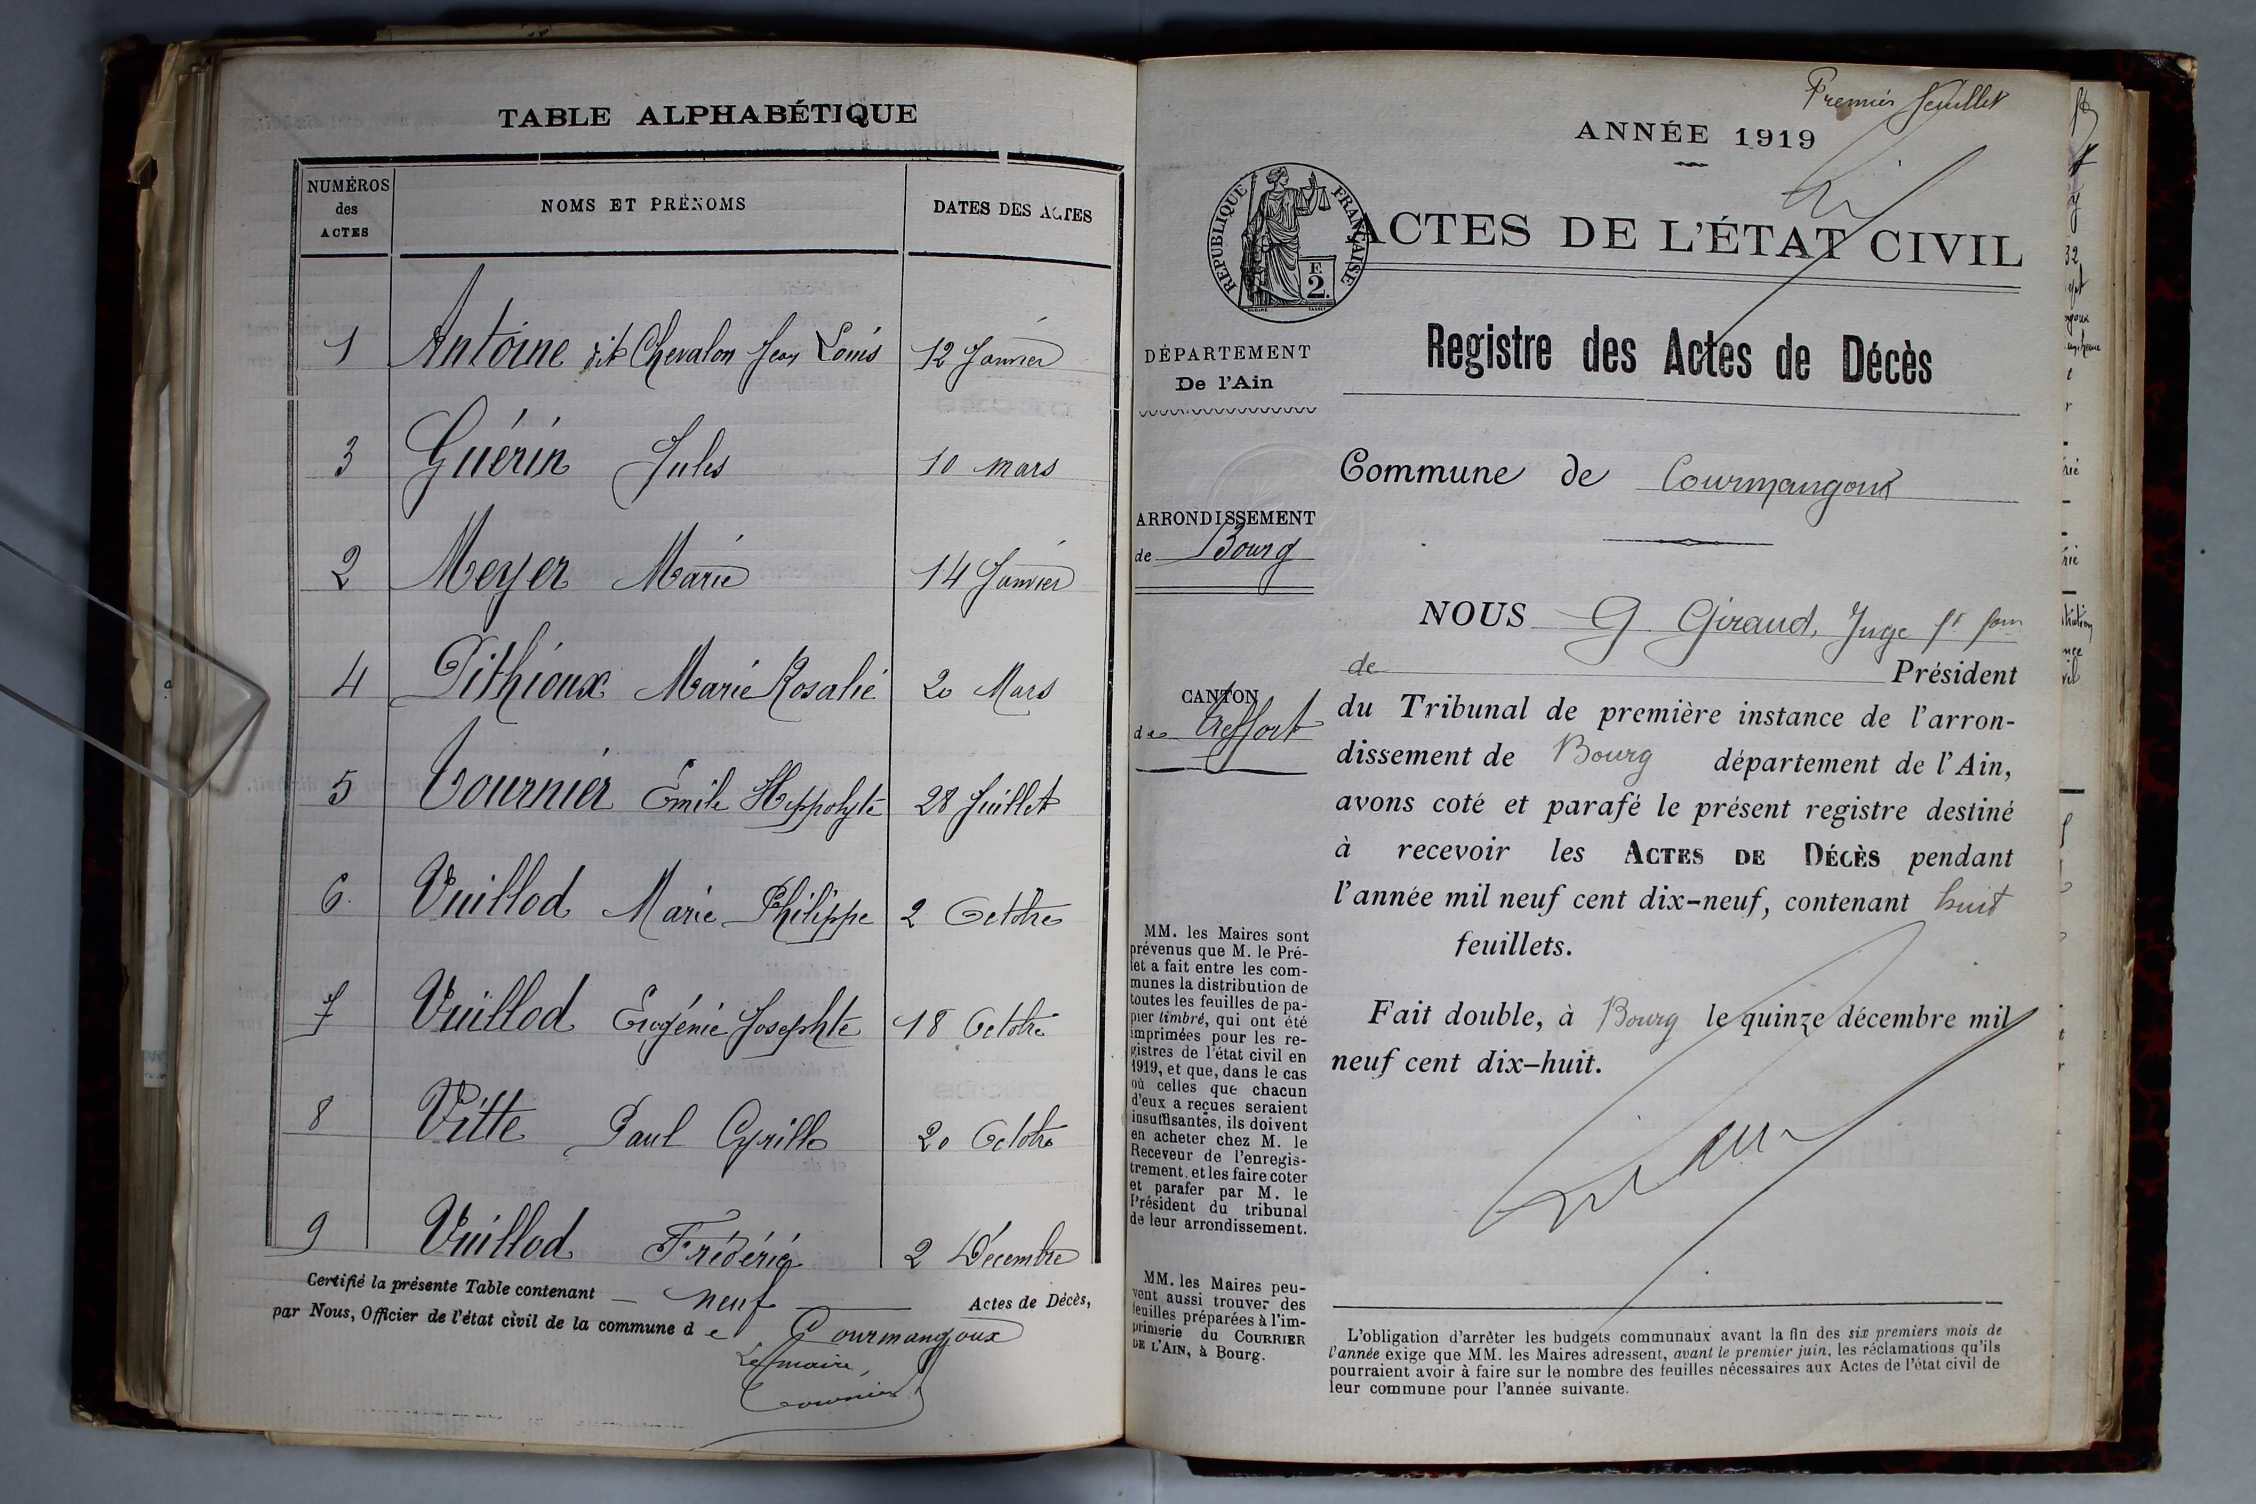 TABLE ALPHABÉTIQUE
NUMÉROS des ACTES
NOMS ET PRÉNOMS
DATES DES ACTES
1 Antoine dit Chevalon Jean Louis 12 Janvier
3 Guérin Jules 10 mars
2 Meyer Marie 14 Janvier
4 Pithioux Marie Rosalie 20 Mars
5 Tournier Emile Hyppolyte 28 Juillet
6 Vuillod Marie Philippe 2 Octobre
7 Vuillod Eugénie Josephte 18 Octobre
8 Vitte Paul Cyrille 20 Octobre
9 Vuillod Frédéric 2 Décembre
Certifié la présente Table contenant neuf Actes de Décès,
par Nous, Officier de l'état civil de la commune de Courmangoux
Le maire,
Tournier
Premier feuillet
ANNÉE 1919
RÉPUBLIQUE FRANÇAISE
F.
2.
ACTES DE L'ÉTAT CIVIL
Registre des Actes de Décès
DÉPARTEMENT
De l'Ain
Commune de Courmangoux
ARRONDISSEMENT
de Bourg
CANTON
de Treffort
NOUS G Giraud, Juge
de Président
du Tribunal de première instance de l'arron-
dissement de Bourg département de l'Ain,
avons coté et parafé le présent registre destiné
à recevoir les ACTES DE DÉCÈS pendant
l'année mil neuf cent dix-neuf, contenant huit
feuillets.
Fait double, à Bourg le quinze décembre mil
neuf cent dix-huit.
MM. les Maires sont
prévenus que M. le Pré-
fet a fait entre les com-
munes la distribution de
toutes les feuilles de pa-
pier timbré, qui ont été
imprimées pour les re-
gistres de l'état civil en
1919, et que, dans le cas
où celles que chacun
d'eux a reçues seraient
insuffisantes, ils doivent
en acheter chez M. le
Receveur de l'enregis-
trement, et les faire coter
et parafer par M. le
Président du tribunal
de leur arrondissement.
MM. les Maires peu-
vent aussi trouver des
feuilles préparées à l'im-
primerie du COURRIER
DE L'AIN, à Bourg.
L'obligation d'arrêter les budgets communaux avant la fin des six premiers mois de
l'année exige que MM. les Maires adressent, avant le premier juin, les réclamations qu'ils
pourraient avoir à faire sur le nombre des feuilles nécessaires aux Actes de l'état civil de
leur commune pour l'année suivante.